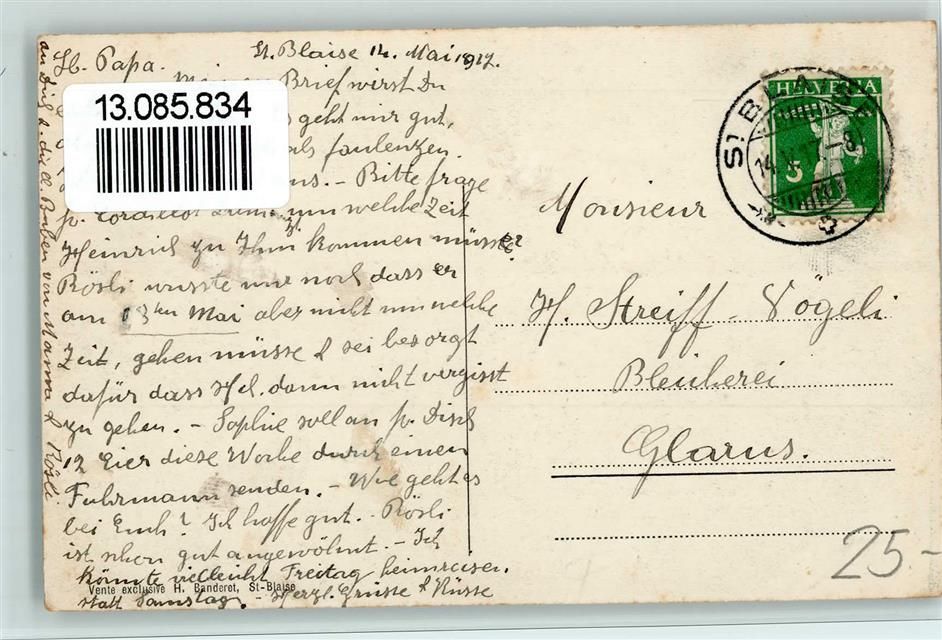 St. Blaise 14. Mai 1917.
Lb. Papa.
Brief wirst Du
geht mir gut,
als faulenzen.
Bitte frage
um welche Zeit
Heinrich zu Ihm kommen müsse?
Rösli wusste nur noch dass er
am Mai aber nicht um welche
Zeit, gehen müsse & sei besorgt
dafür dass Hch. dann nicht vergisst
zu gehen. – Sophie soll an Fr. Disch
12 Eier diese Woche durch einen
Fuhrmann senden. – Wie geht es
bei Euch? Ich hoffe gut. – Rösli
ist schon gut angewöhnt. – Ich
könnte vielleicht Freitag heimreisen.
statt Samstag. Herzl. Grüsse & Küsse
an Dich & die Buben von Mama & Rösli
13.085.834
Vente exclusive H. Banderet, St-Blaise
HELVETIA
5
ST BLAISE
Monsieur
H. Streiff-Vögeli
Bleicherei
Glarus.
25-